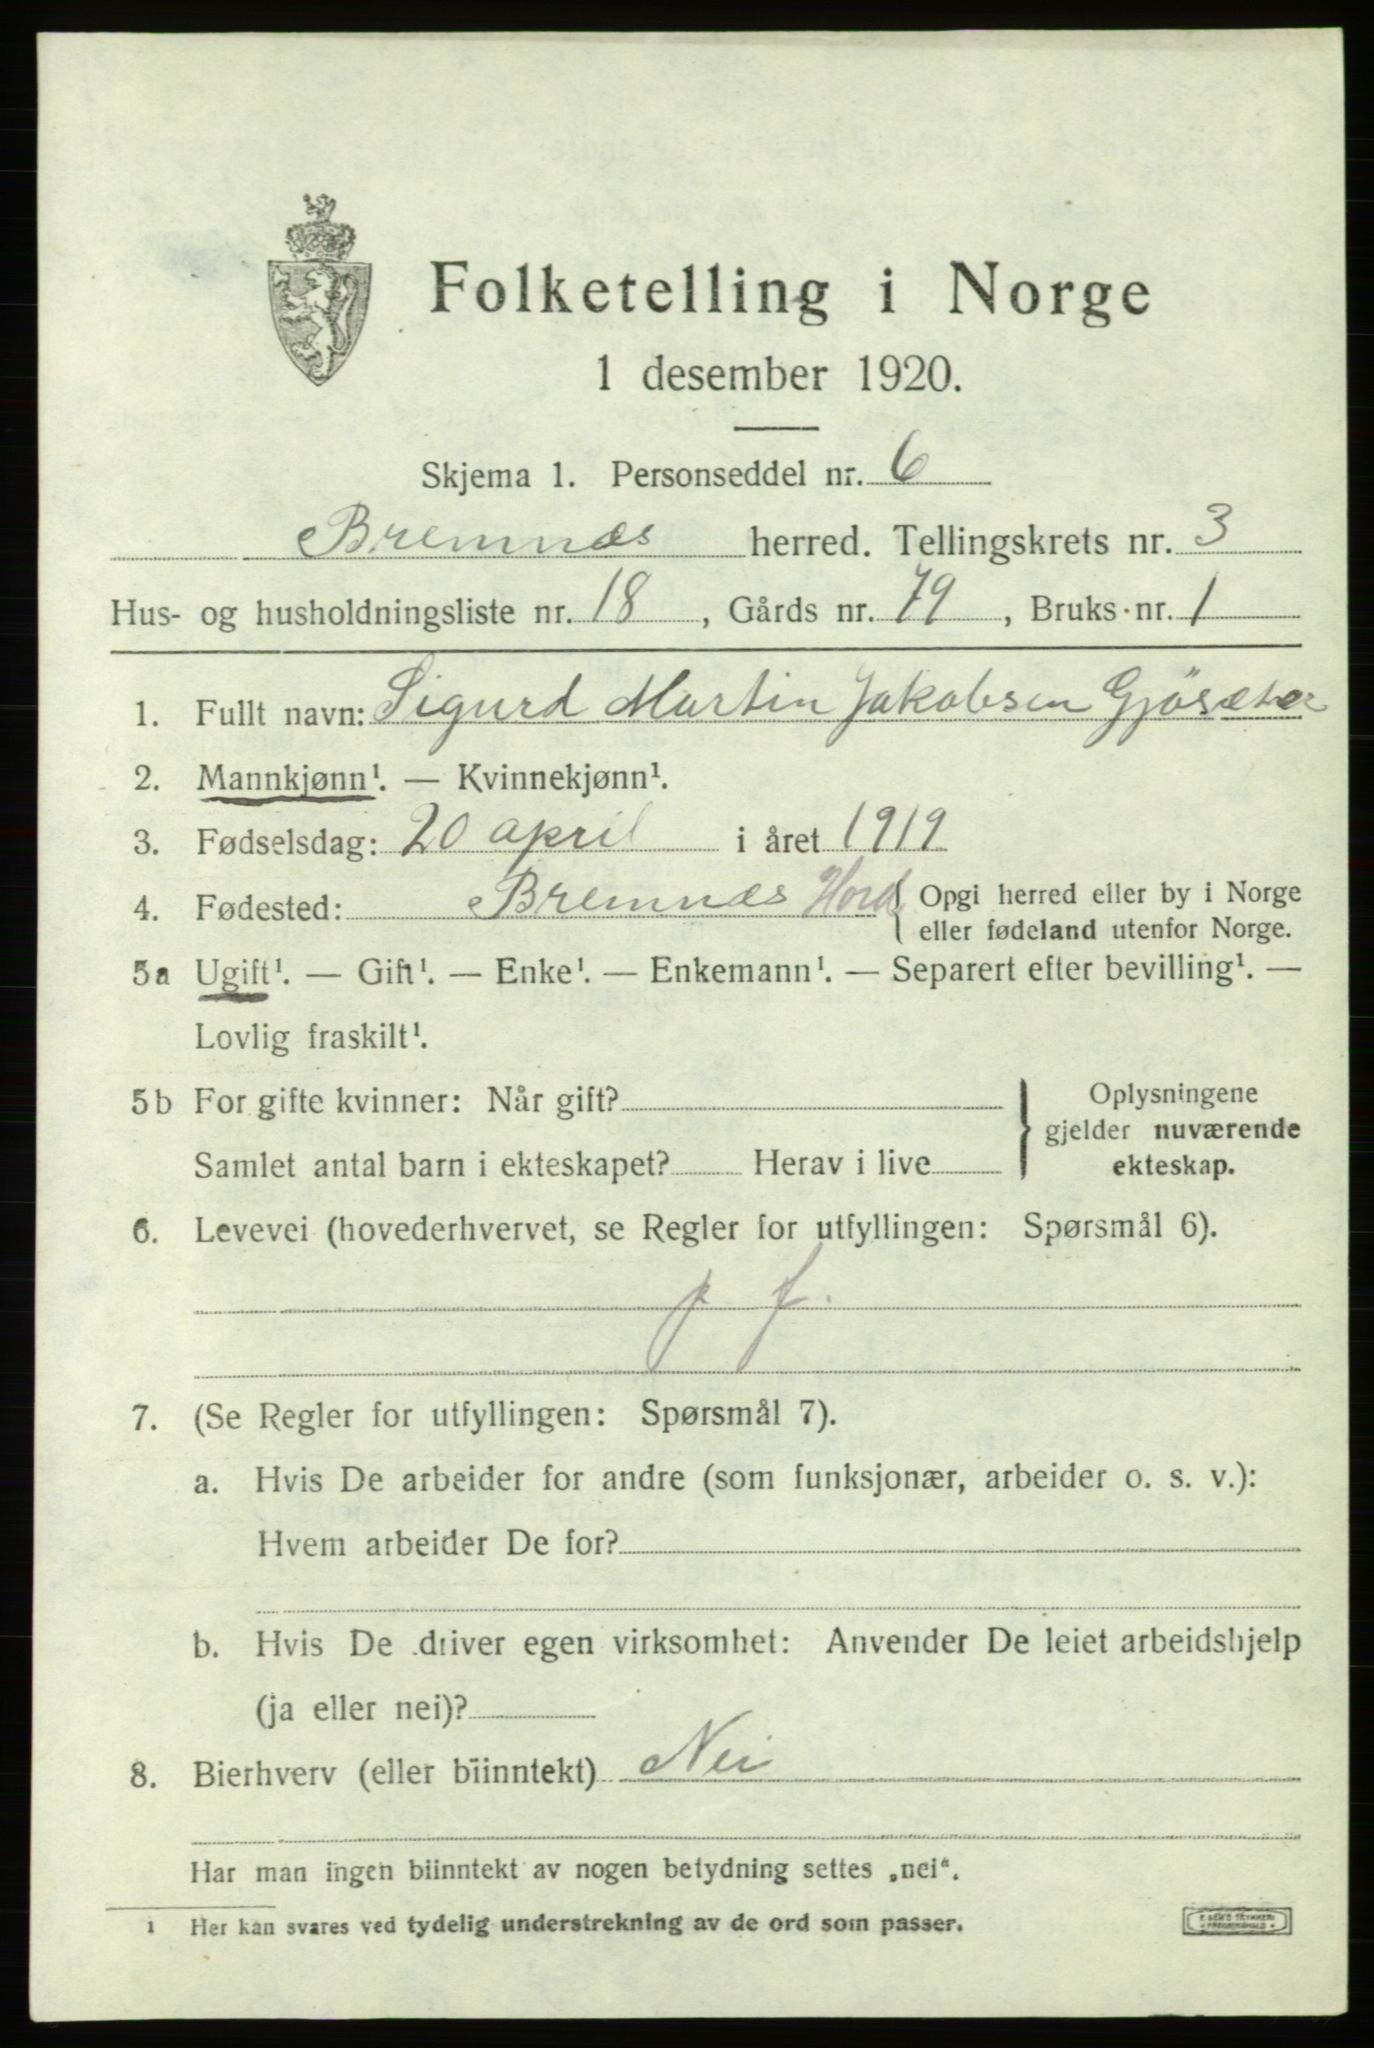 Folketelling i Norge
1 desember 1920.
Skjema 1. Personseddel nr. 6
Bremnæs herred. Tellingskrets nr. 3
Hus- og husholdningsliste nr. 18, Gårds nr. 79, Bruks nr. 1
1. Fullt navn: Sigurd Martin Jakobsen Gjösæter
2. Mannkjønn¹. — Kvinnekjønn¹.
3. Fødselsdag: 20 april i året 1919
4. Fødested: Bremnæs Hord { Opgi herred eller by i Norge
eller fødeland utenfor Norge.
5a Ugift¹. — Gift¹. — Enke¹. — Enkemann¹. — Separert efter bevilling¹. —
Lovlig fraskilt¹.
5b For gifte kvinner: Når gift?
Samlet antal barn i ekteskapet? Herav i live
} Oplysningene
gjelder nuværende
ekteskap.
6. Levevei (hovederhvervet, se Regler for utfyllingen: Spørsmål 6).
p f.
7. (Se Regler for utfyllingen: Spørsmål 7).
a. Hvis De arbeider for andre (som funksjonær, arbeider o. s. v.):
Hvem arbeider De for?
b. Hvis De driver egen virksomhet: Anvender De leiet arbeidshjelp
(ja eller nei)?
8. Bierhverv (eller biinntekt) Nei
Har man ingen biinntekt av nogen betydning settes „nei“.
1 Her kan svares ved tydelig understrekning av de ord som passer.